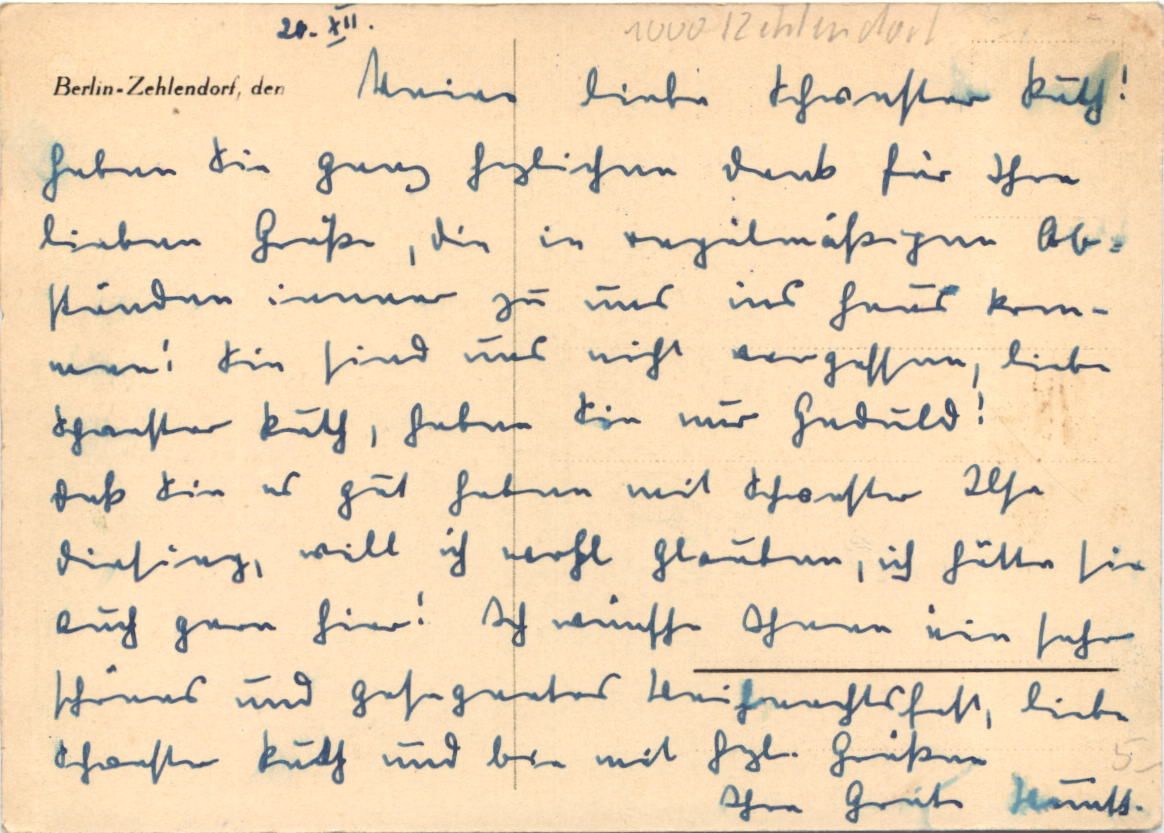 20. XII.
1000 Zehlendorf
Berlin-Zehlendorf, den Meine liebe Schwester Ruth!
haben Sie ganz herzlichen Dank für Ihre
lieben Grüße, die in regelmäßigen Ab-
ständen immer zu uns ins Haus kom-
men! Sie sind uns nicht vergessen, liebe
Schwester Ruth, haben Sie nur Geduld!
Daß Sie es gut haben mit Schwester Ilse
Diesing, will ich wohl glauben, ich hätte sie
auch gern hier! Ich wünsche Ihnen ein sehr
schönes und gesegnetes Weihnachtsfest, liebe
Schwester Ruth und bin mit hzl. Grüßen
Ihre Grete
5.-